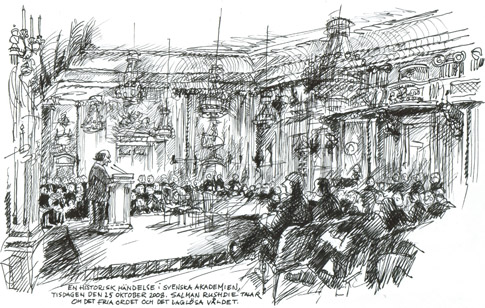 EN HISTORISK HÄNDELSE I SVENSKA AKADEMIEN,
TISDAGEN DEN 25 OKTOBER 2008. SALMAN RUSHDIE TALAR
OM DET FRIA ORDET OCH DET LAGLÖSA VÅLDET.